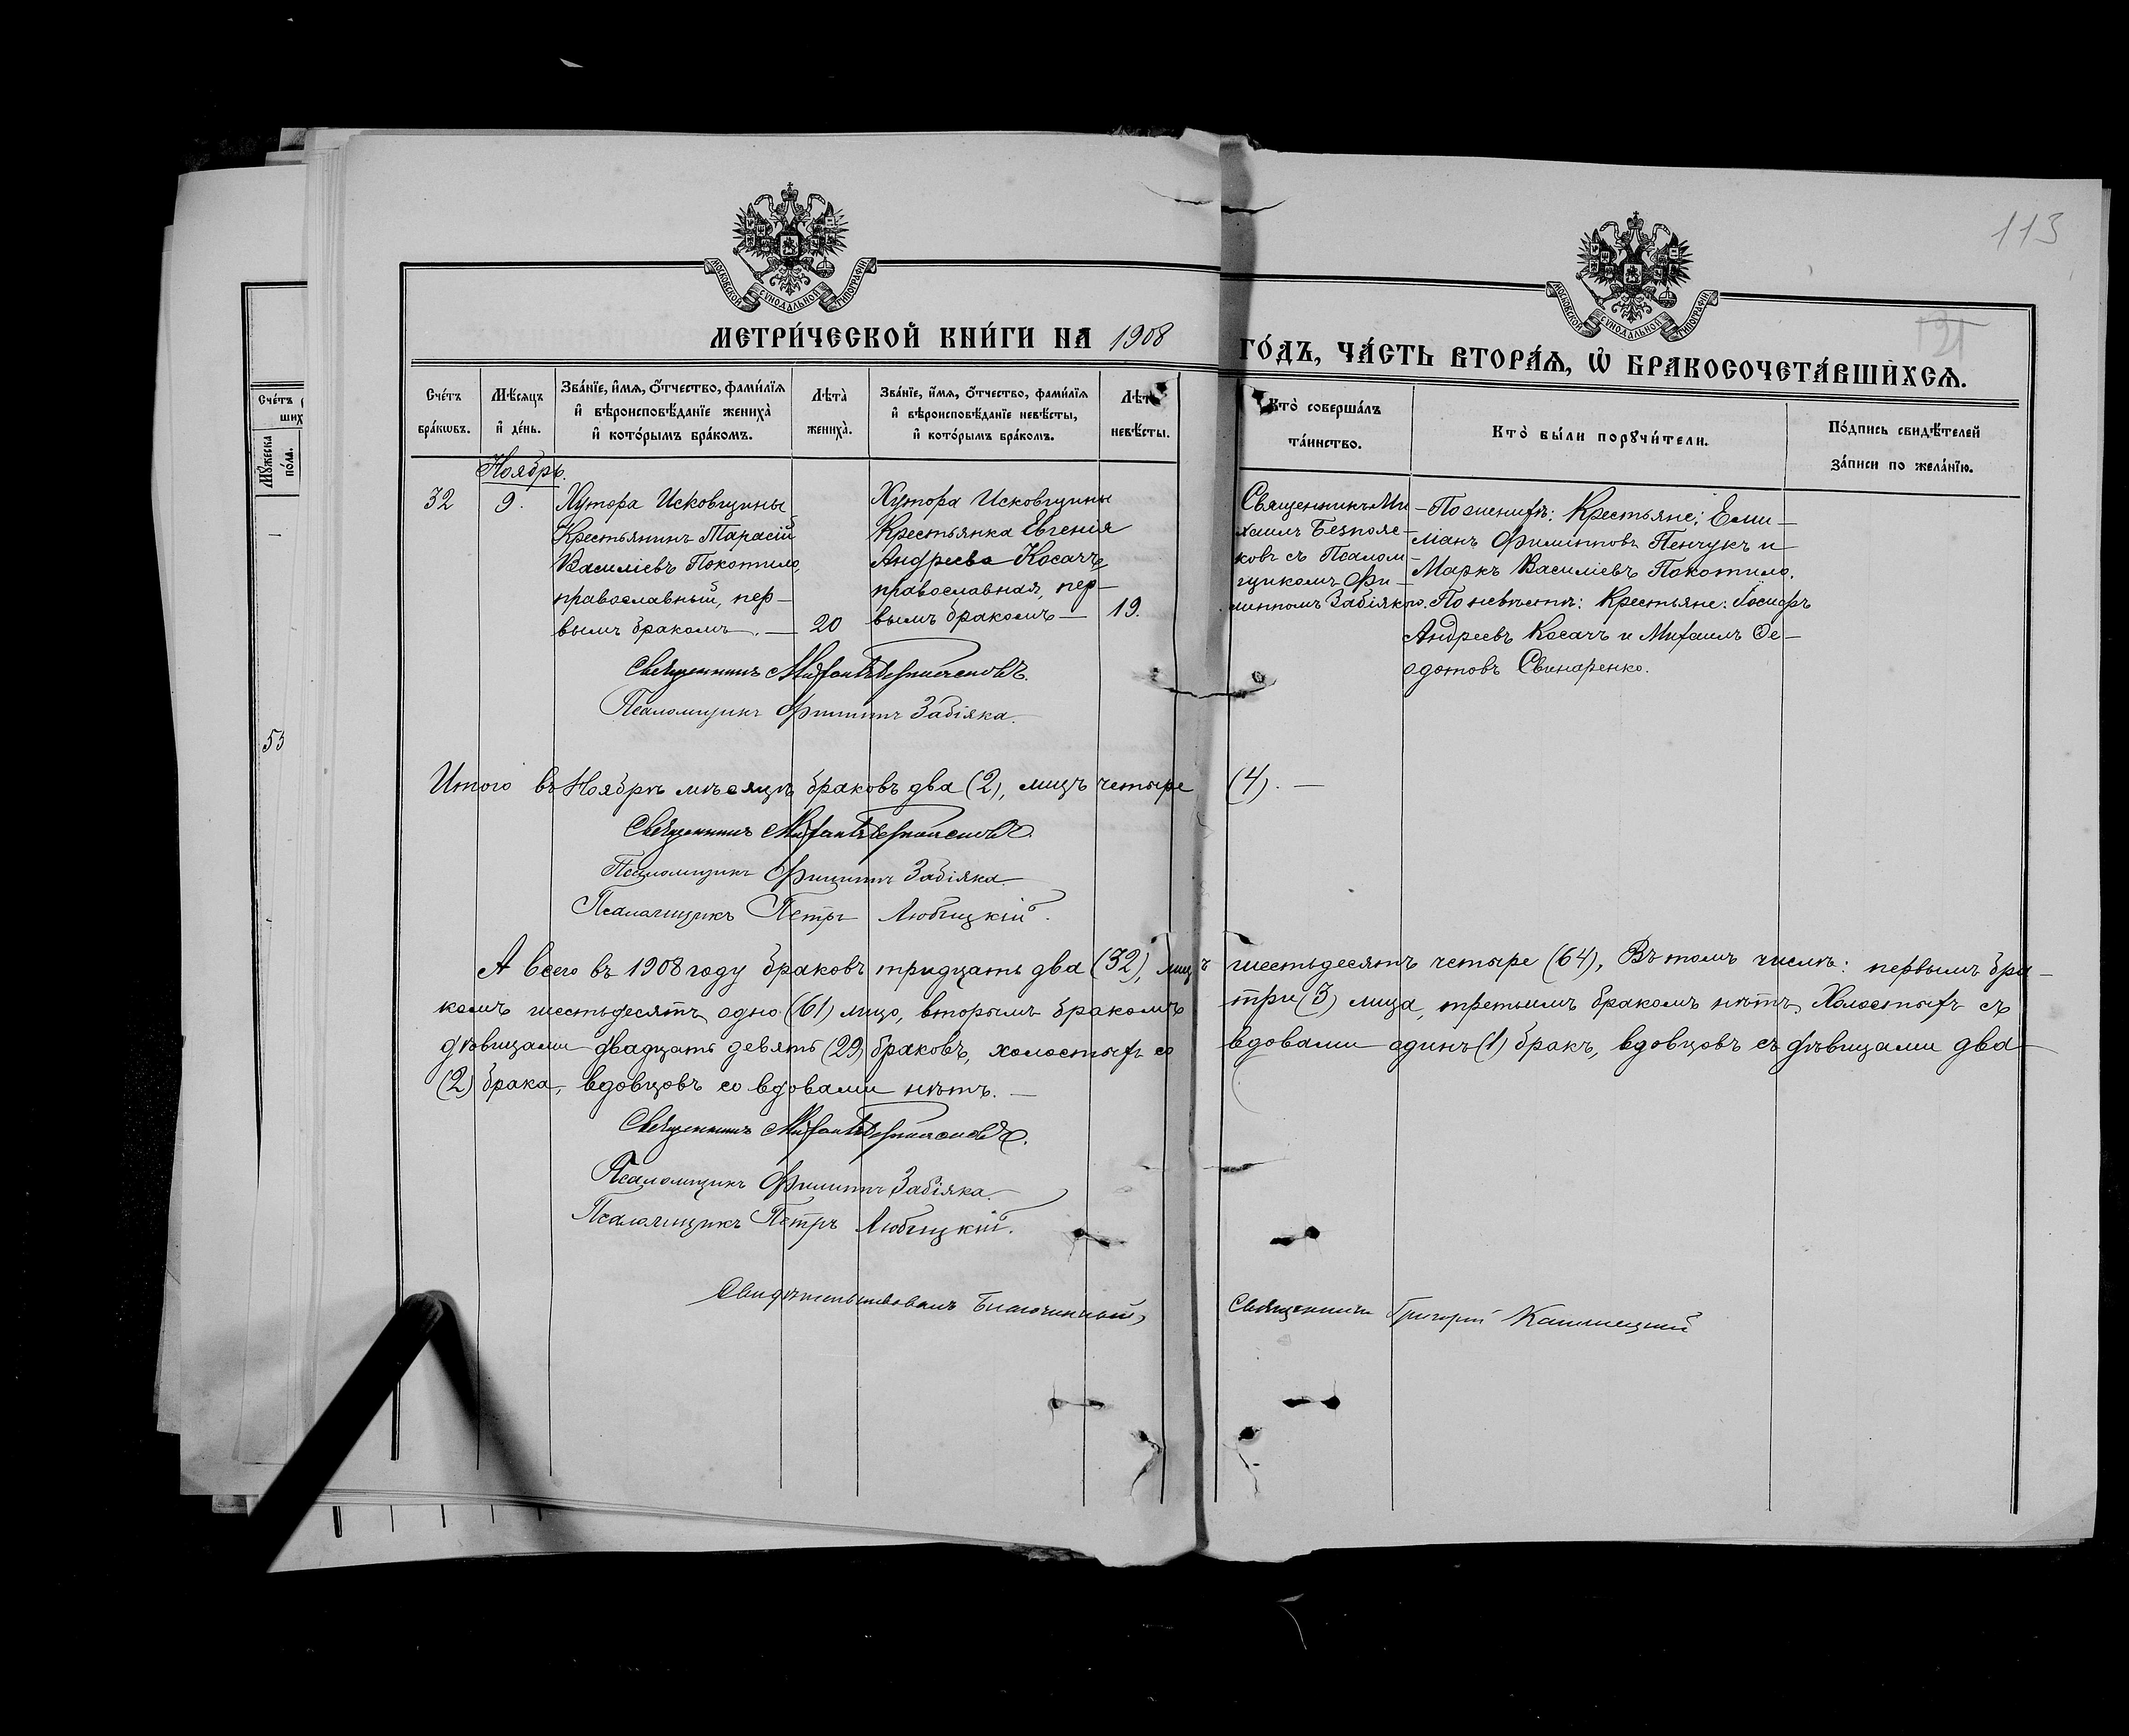 113
МОСКОВСКОЙ СѴНОДАЛЬНОЙ ТИПОГРАФІИ
МОСКОВСКОЙ СѴНОДАЛЬНОЙ ТИПОГРАФІИ
МЕТРИ́ЧЕСКОЙ КНИ́ГИ НА 1908 ГО́ДЪ, ЧА́СТЬ ВТОРА́Ѧ, Ѽ БРАКОСОЧЕТА́ВШИХСѦ.
Сче́тъ
ших
Мꙋ́жеска
по́ла.
53
Сче́тъ бра́кѡвъ.
Мѣ́сяцъ и де́нь.
Зва́нїе, и́мѧ, ѻ́тчество, фами́лїѧ и вѣроисповѣ́данїе жениха̀ и кото́рымъ бра́комъ.
Лѣта̀ жениха̀.
Зва́нїе, и́мѧ, ѻ́тчество, фами́лїѧ и вѣроисповѣ́данїе невѣ́сты, и кото́рымъ бра́комъ.
Лѣта̀ невѣ́сты.
Кто̀ соверша́лъ та́инство.
Кто̀ бы́ли порꙋчи́тели.
По́дпись свидѣ́телей за́писи по жела́нїю.
Ноябрь.
32
9.
Хутора Исковщины
Крестьянинъ Тарасій
Василіевъ Покотило,
православный, пер-
вымъ бракомъ. —
20
Хутора Исковщины
Крестьянка Евгенія
Андреева Косачъ,
православная, пер-
вымъ бракомъ —
19.
Священникъ Ми-
хаилъ Безпояс-
ковъ съ Псалом-
щикомъ Фи-
липпомъ Забіякою.
По женихѣ: Крестьяне: Еми-
ліанъ Филипповъ Пенчукъ и
Маркъ Василіевъ Покотило.
По невѣстѣ: Крестьяне: Іосифъ
Андреевъ Косачъ и Михаилъ Ѳе-
одотовъ Свинаренко.
Священникъ Михаилъ Безпоясковъ.
Псаломщикъ Филиппъ Забіяка.
Итого въ Ноябрѣ мѣсяцѣ браковъ два (2), лицъ четыре (4). —
Священникъ Михаилъ Безпоясковъ.
Псаломщикъ Филиппъ Забіяка.
Псаломщикъ Петръ Любицкій.
А всего въ 1908 году браковъ тридцать два (32), лицъ шестьдесятъ четыре (64). Въ томъ числѣ: первымъ бра-
комъ шестьдесятъ одно (61) лицо, вторымъ бракомъ три (3) лица, третьимъ бракомъ нѣтъ, Холостыхъ съ
дѣвицами двадцать девять (29) браковъ, холостыхъ со вдовами одинъ (1) бракъ, вдовцовъ съ дѣвицами два
(2) брака, вдовцовъ со вдовами нѣтъ. —
Священникъ Михаилъ Безпоясковъ.
Псаломщикъ Филиппъ Забіяка.
Псаломщикъ Петръ Любицкій.
Свидѣтельствовалъ Благочинный, Священникъ Григорій